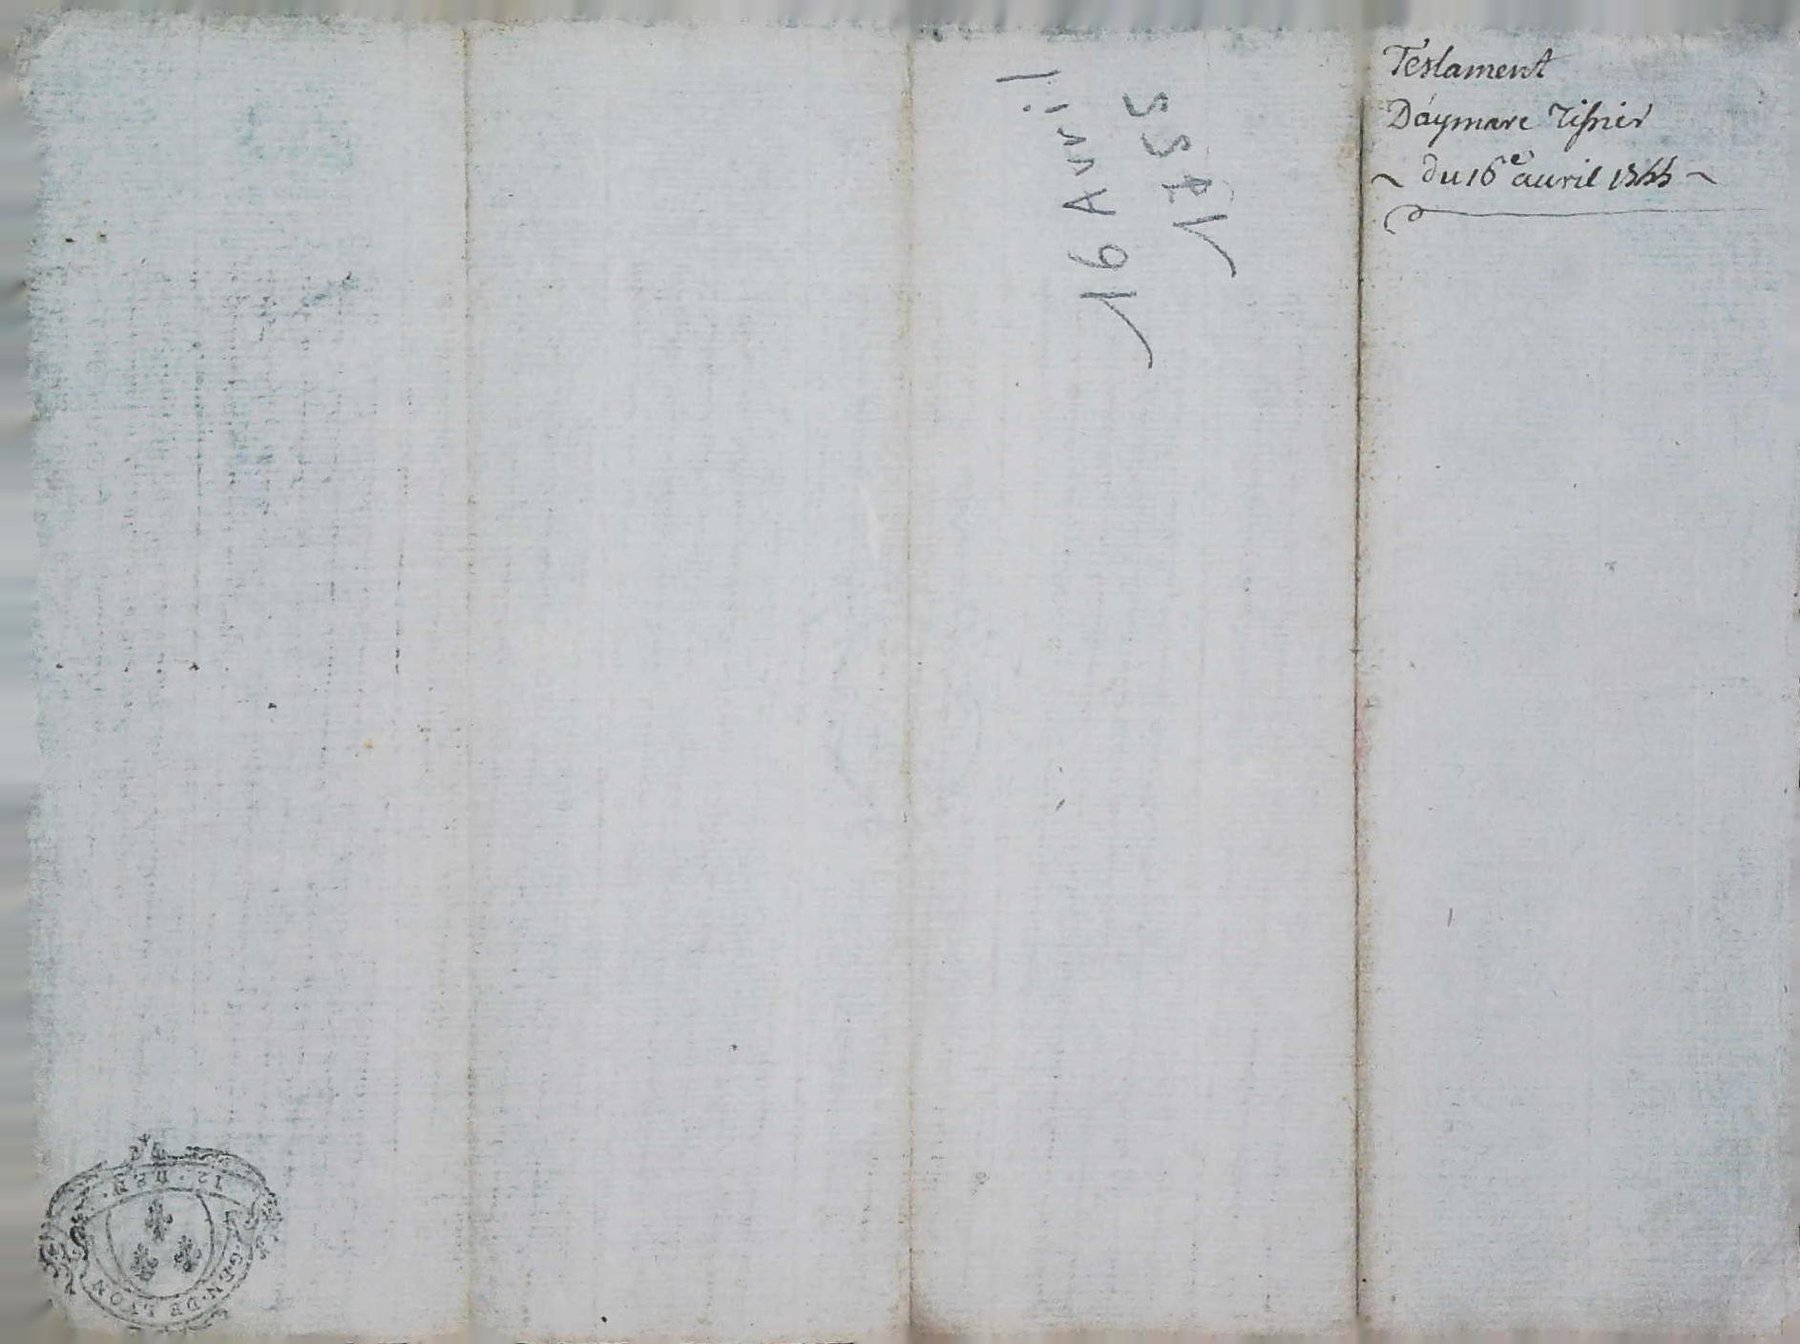 Testament
D'aymare Tissier
~ du 16e auvril 1755 ~
16 Avril
1755
12·DEN·
GEN·DE LYON